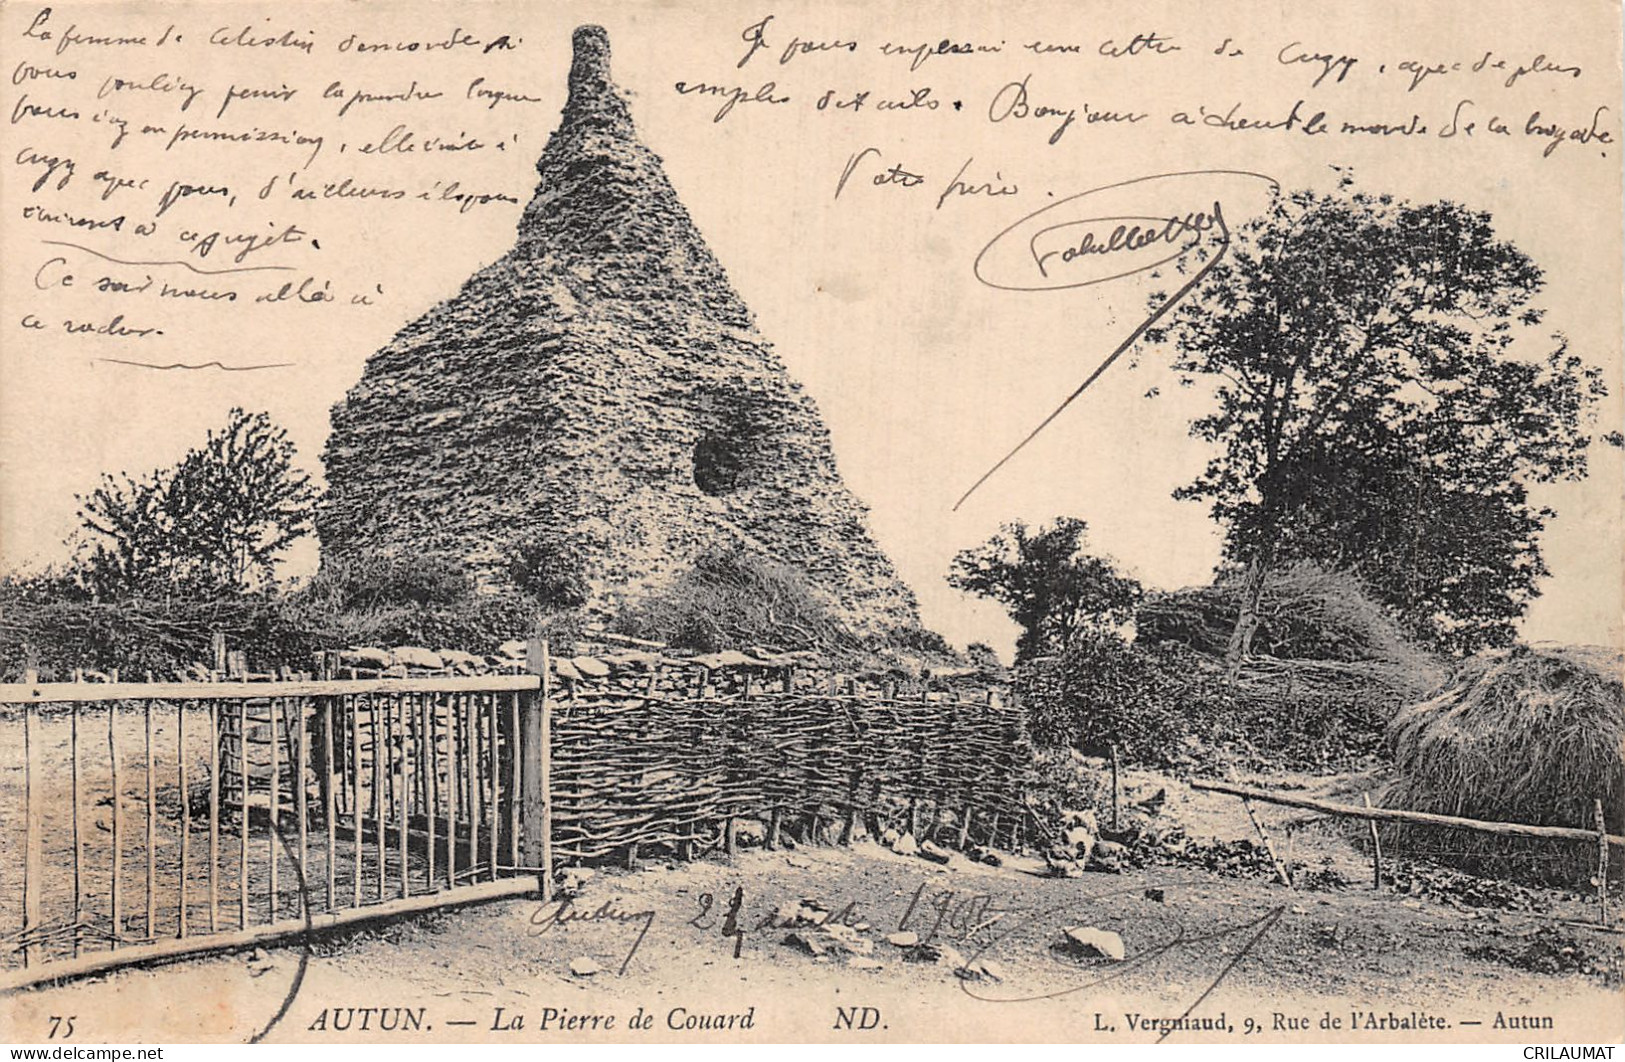 La femme de Celestin demande si
vous vouliez venir la prendre lorsque
vous irez en permission, elle irait à
Cugy avec vous, d'ailleurs ils vous
écriront à ce sujet.
Ce soir nous allé à
ce
Je vous enverrai une lettre de Cugy, avec de plus
amples détails. Bonjour à tout le monde de la brigade.
Votre frère.
Autun 24
75 AUTUN. — La Pierre de Couard ND. L. Vergniaud, 9, Rue de l'Arbalète. — Autun
CRILAUMAT